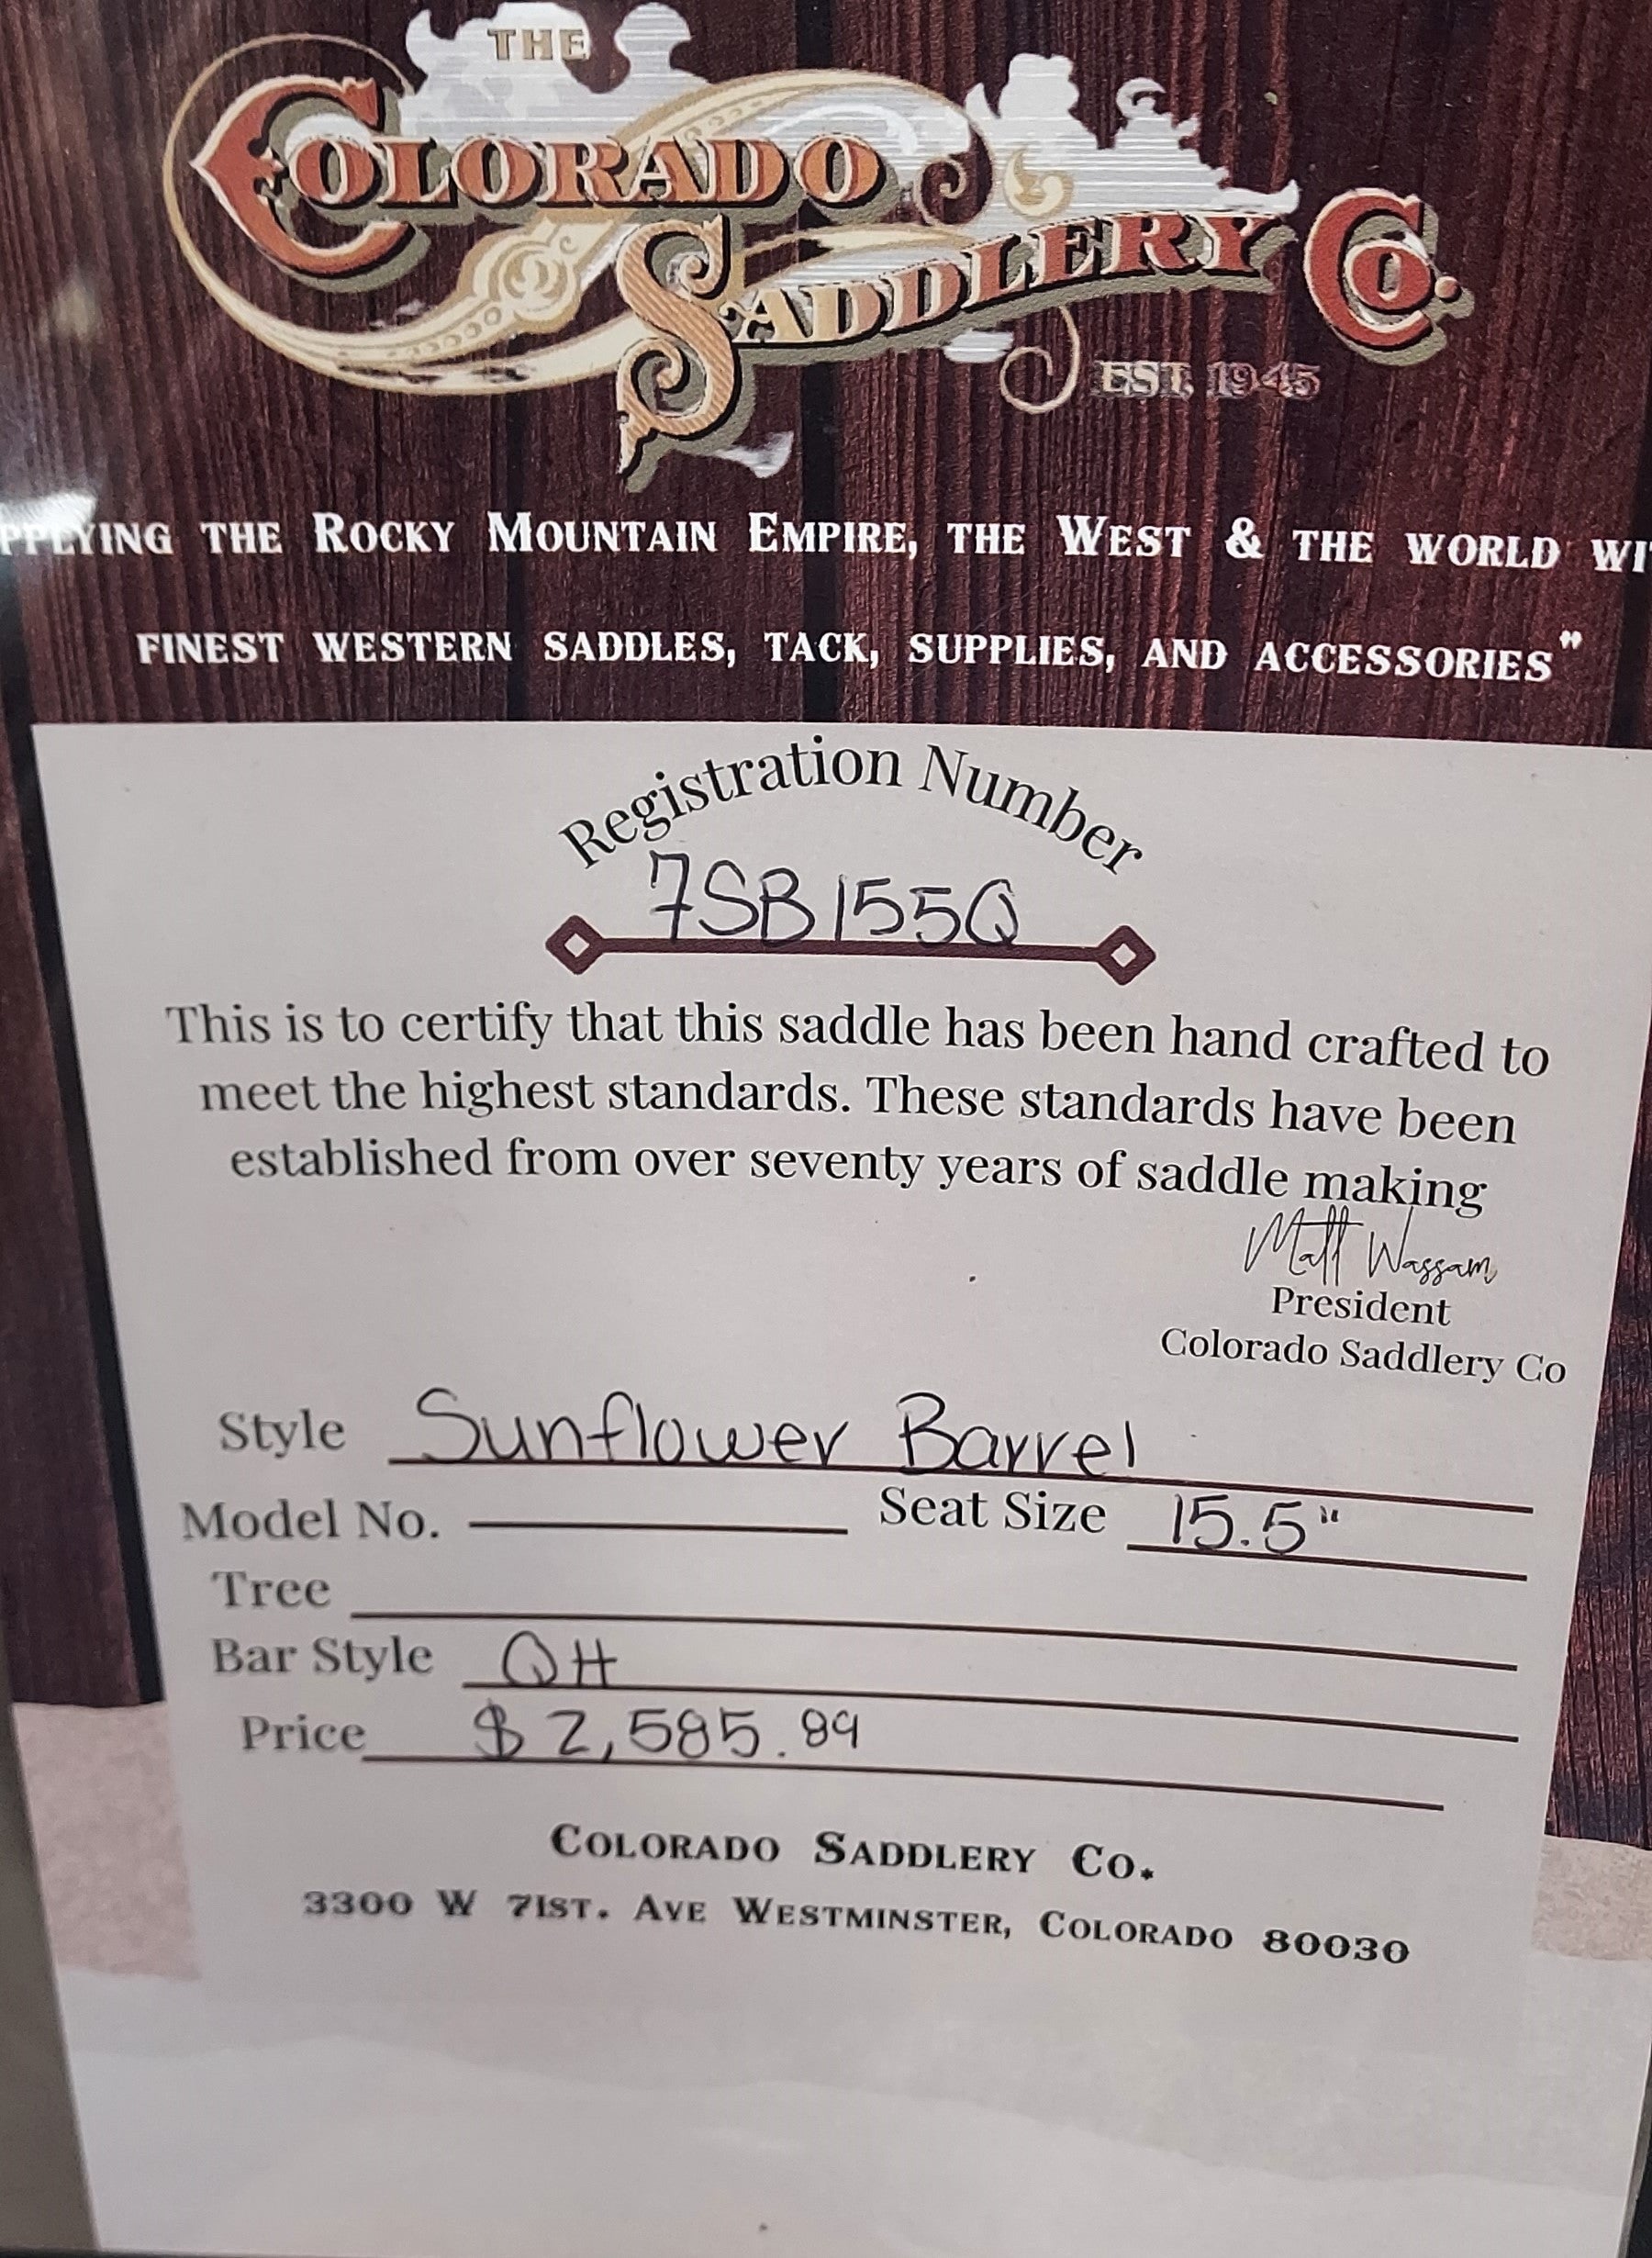 THE
COLORADO
SADDLERY CO.
EST. 1945
PPLYING THE ROCKY MOUNTAIN EMPIRE, THE WEST & THE WORLD WI
FINEST WESTERN SADDLES, TACK, SUPPLIES, AND ACCESSORIES”
Registration Number
7SB155Q
This is to certify that this saddle has been hand crafted to
meet the highest standards. These standards have been
established from over seventy years of saddle making
Matt Wassam
President
Colorado Saddlery Co
Style Sunflower Barrel
Model No. Seat Size 15.5"
Tree
Bar Style QH
Price $2,585.89
COLORADO SADDLERY CO.
3300 W 71ST. AVE WESTMINSTER, COLORADO 80030